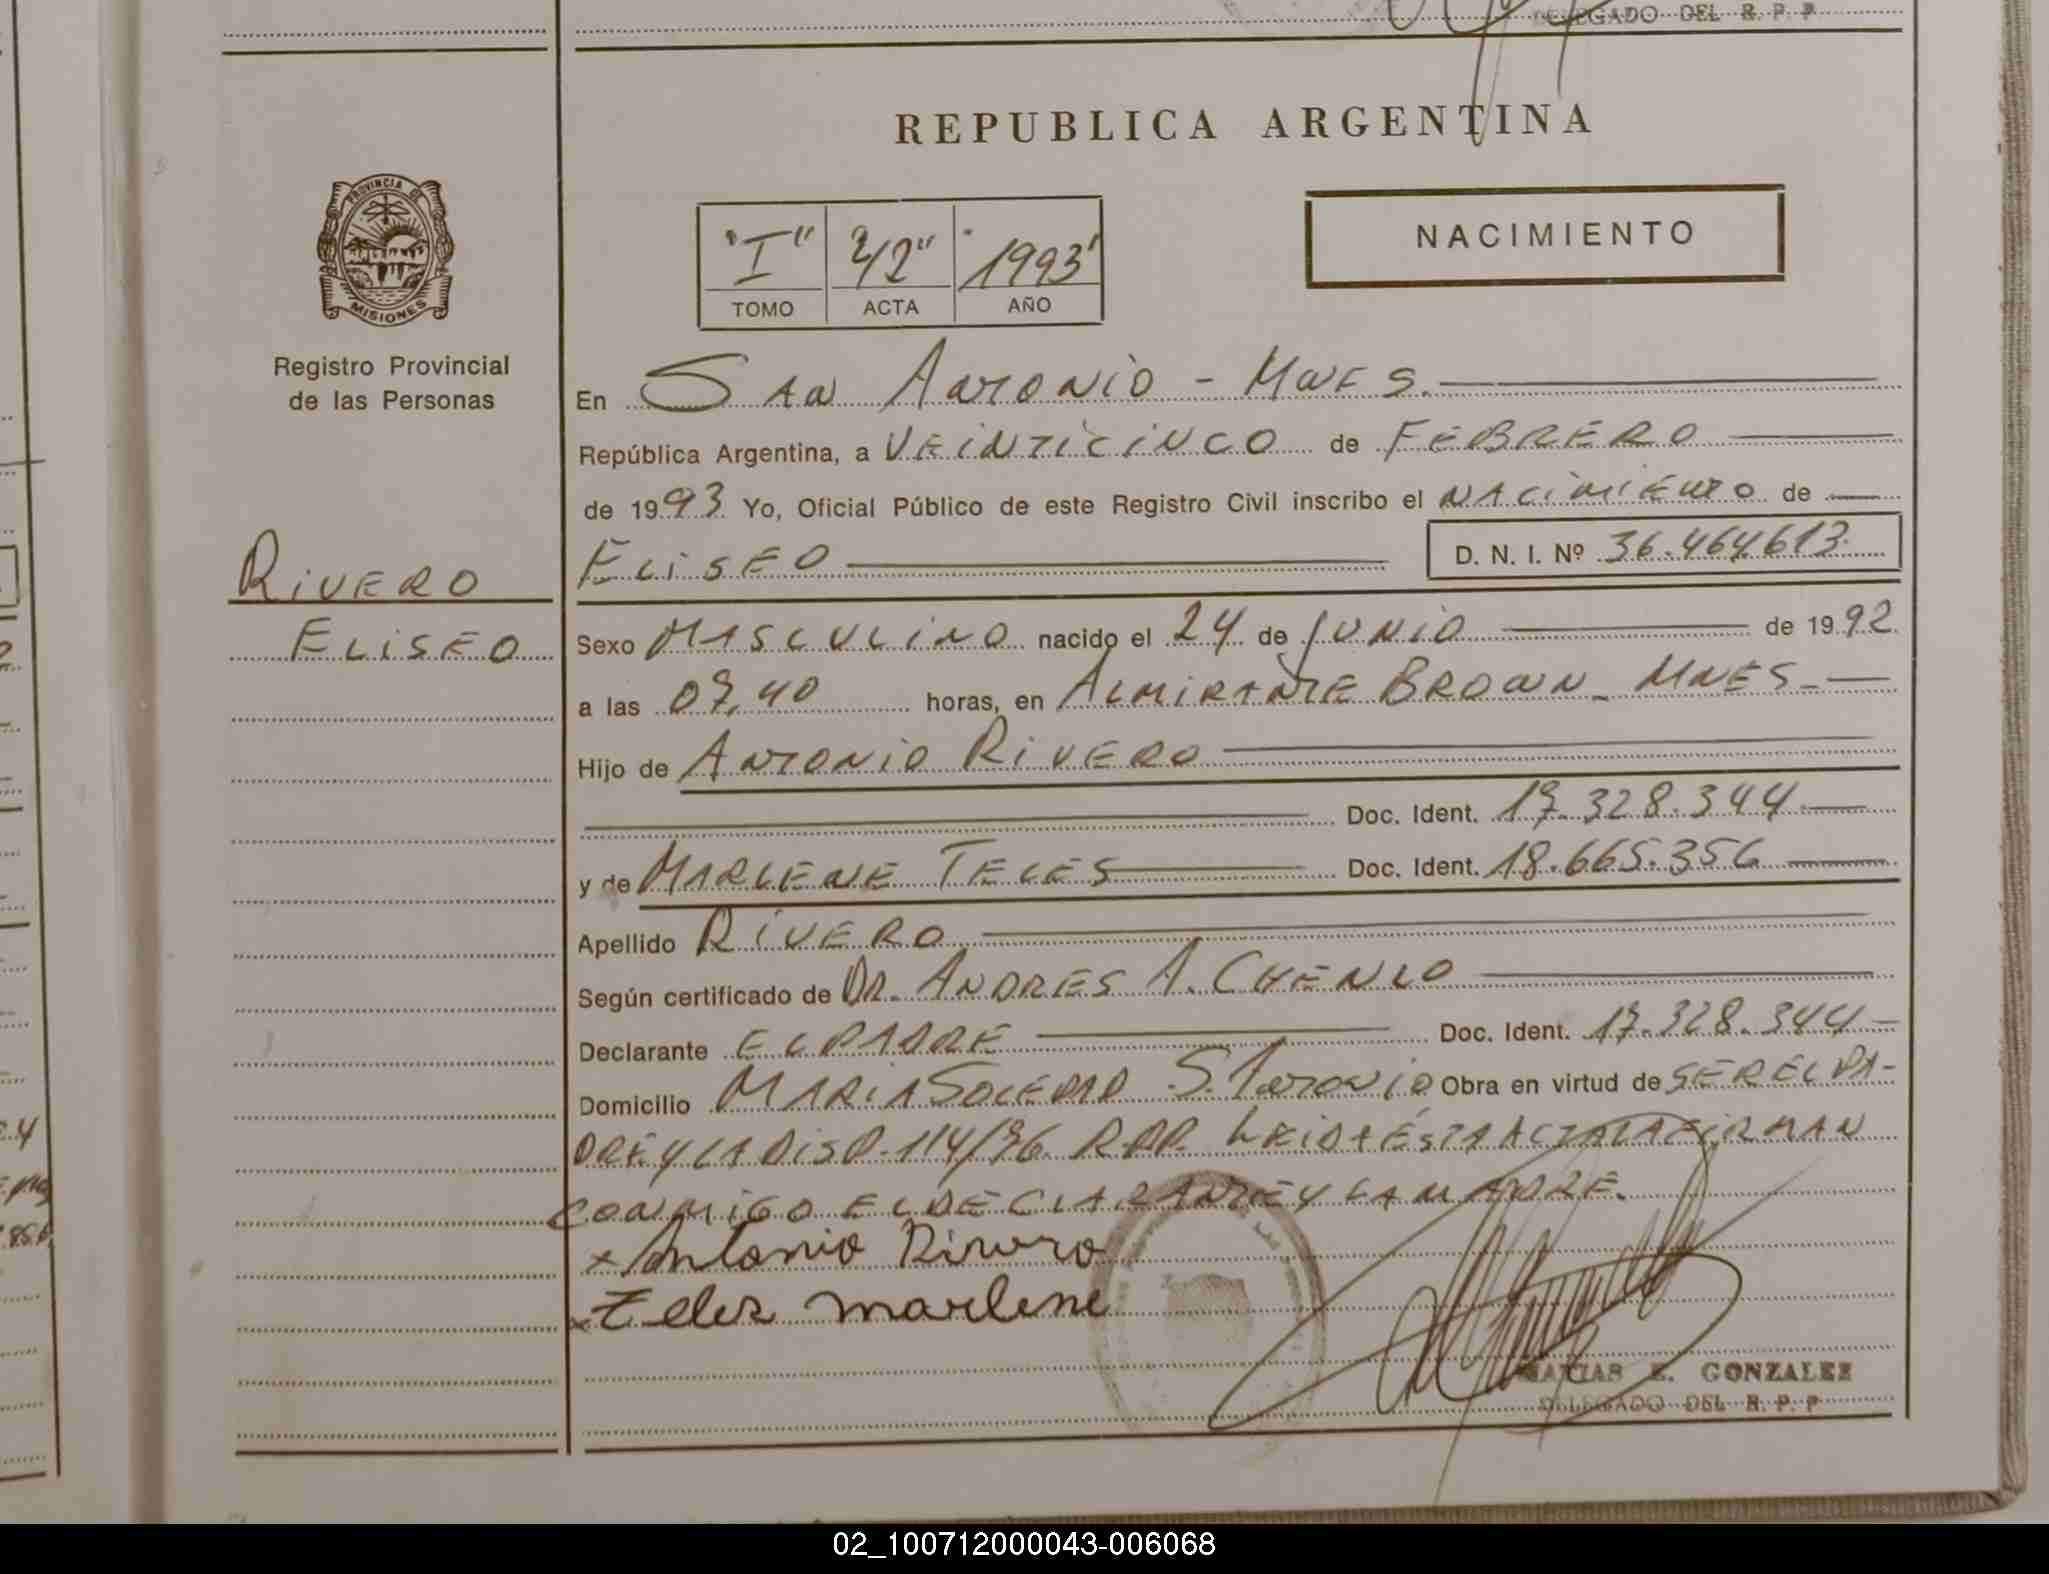 DELEGADO DEL R. P. P
REPUBLICA ARGENTINA
PROVINCIA DE
MISIONES
Registro Provincial
de las Personas
"I" 212" "1993"
TOMO ACTA AÑO
NACIMIENTO
En SAN ANTONIO - MNES.
República Argentina, a VEINTICINCO de FEBRERO
de 1993 Yo, Oficial Público de este Registro Civil inscribo el NACIMIENTO de
ELISEO D. N. I. Nº 36.464.613
RIVERO
ELISEO
Sexo MASCULINO nacido el 24 de JUNIO de 1992
a las 07,40 horas, en ALMIRANTE BROWN - MNES -
Hijo de ANTONIO RIVERO
Doc. Ident. 17.328.344
y de MARLENE TELES Doc. Ident. 18.665.356
Apellido RIVERO
Según certificado de DR. ANDRES A. CHENLO
Declarante EL PADRE Doc. Ident. 17.328.344
Domicilio MARIA SOLEDAD S. ANTONIO Obra en virtud de SER EL PA-
DRE Y LA DISP. 114/76 R.P.P. LEIDA ÉSTA ACTA LA FIRMAN
CONMIGO EL DECLARANTE Y LA MADRE.
x Antonio Rivero
x Teles marlene
MATIAS E. GONZALEZ
DELEGADO DEL R. P. P
02_100712000043-006068